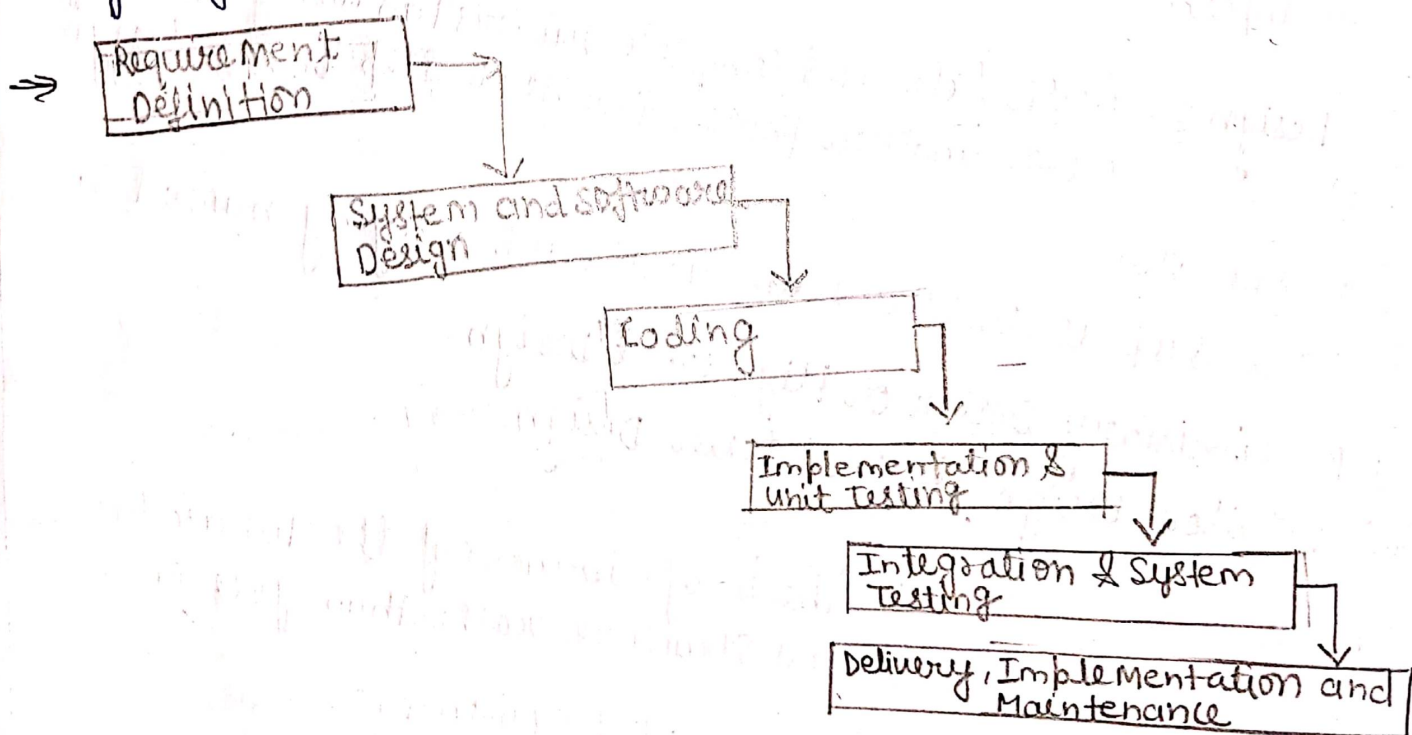 Requirement
Definition
System and software
Design
Coding
Implementation &
unit testing
Integration & System
Testing
Delivery, Implementation and
Maintenance